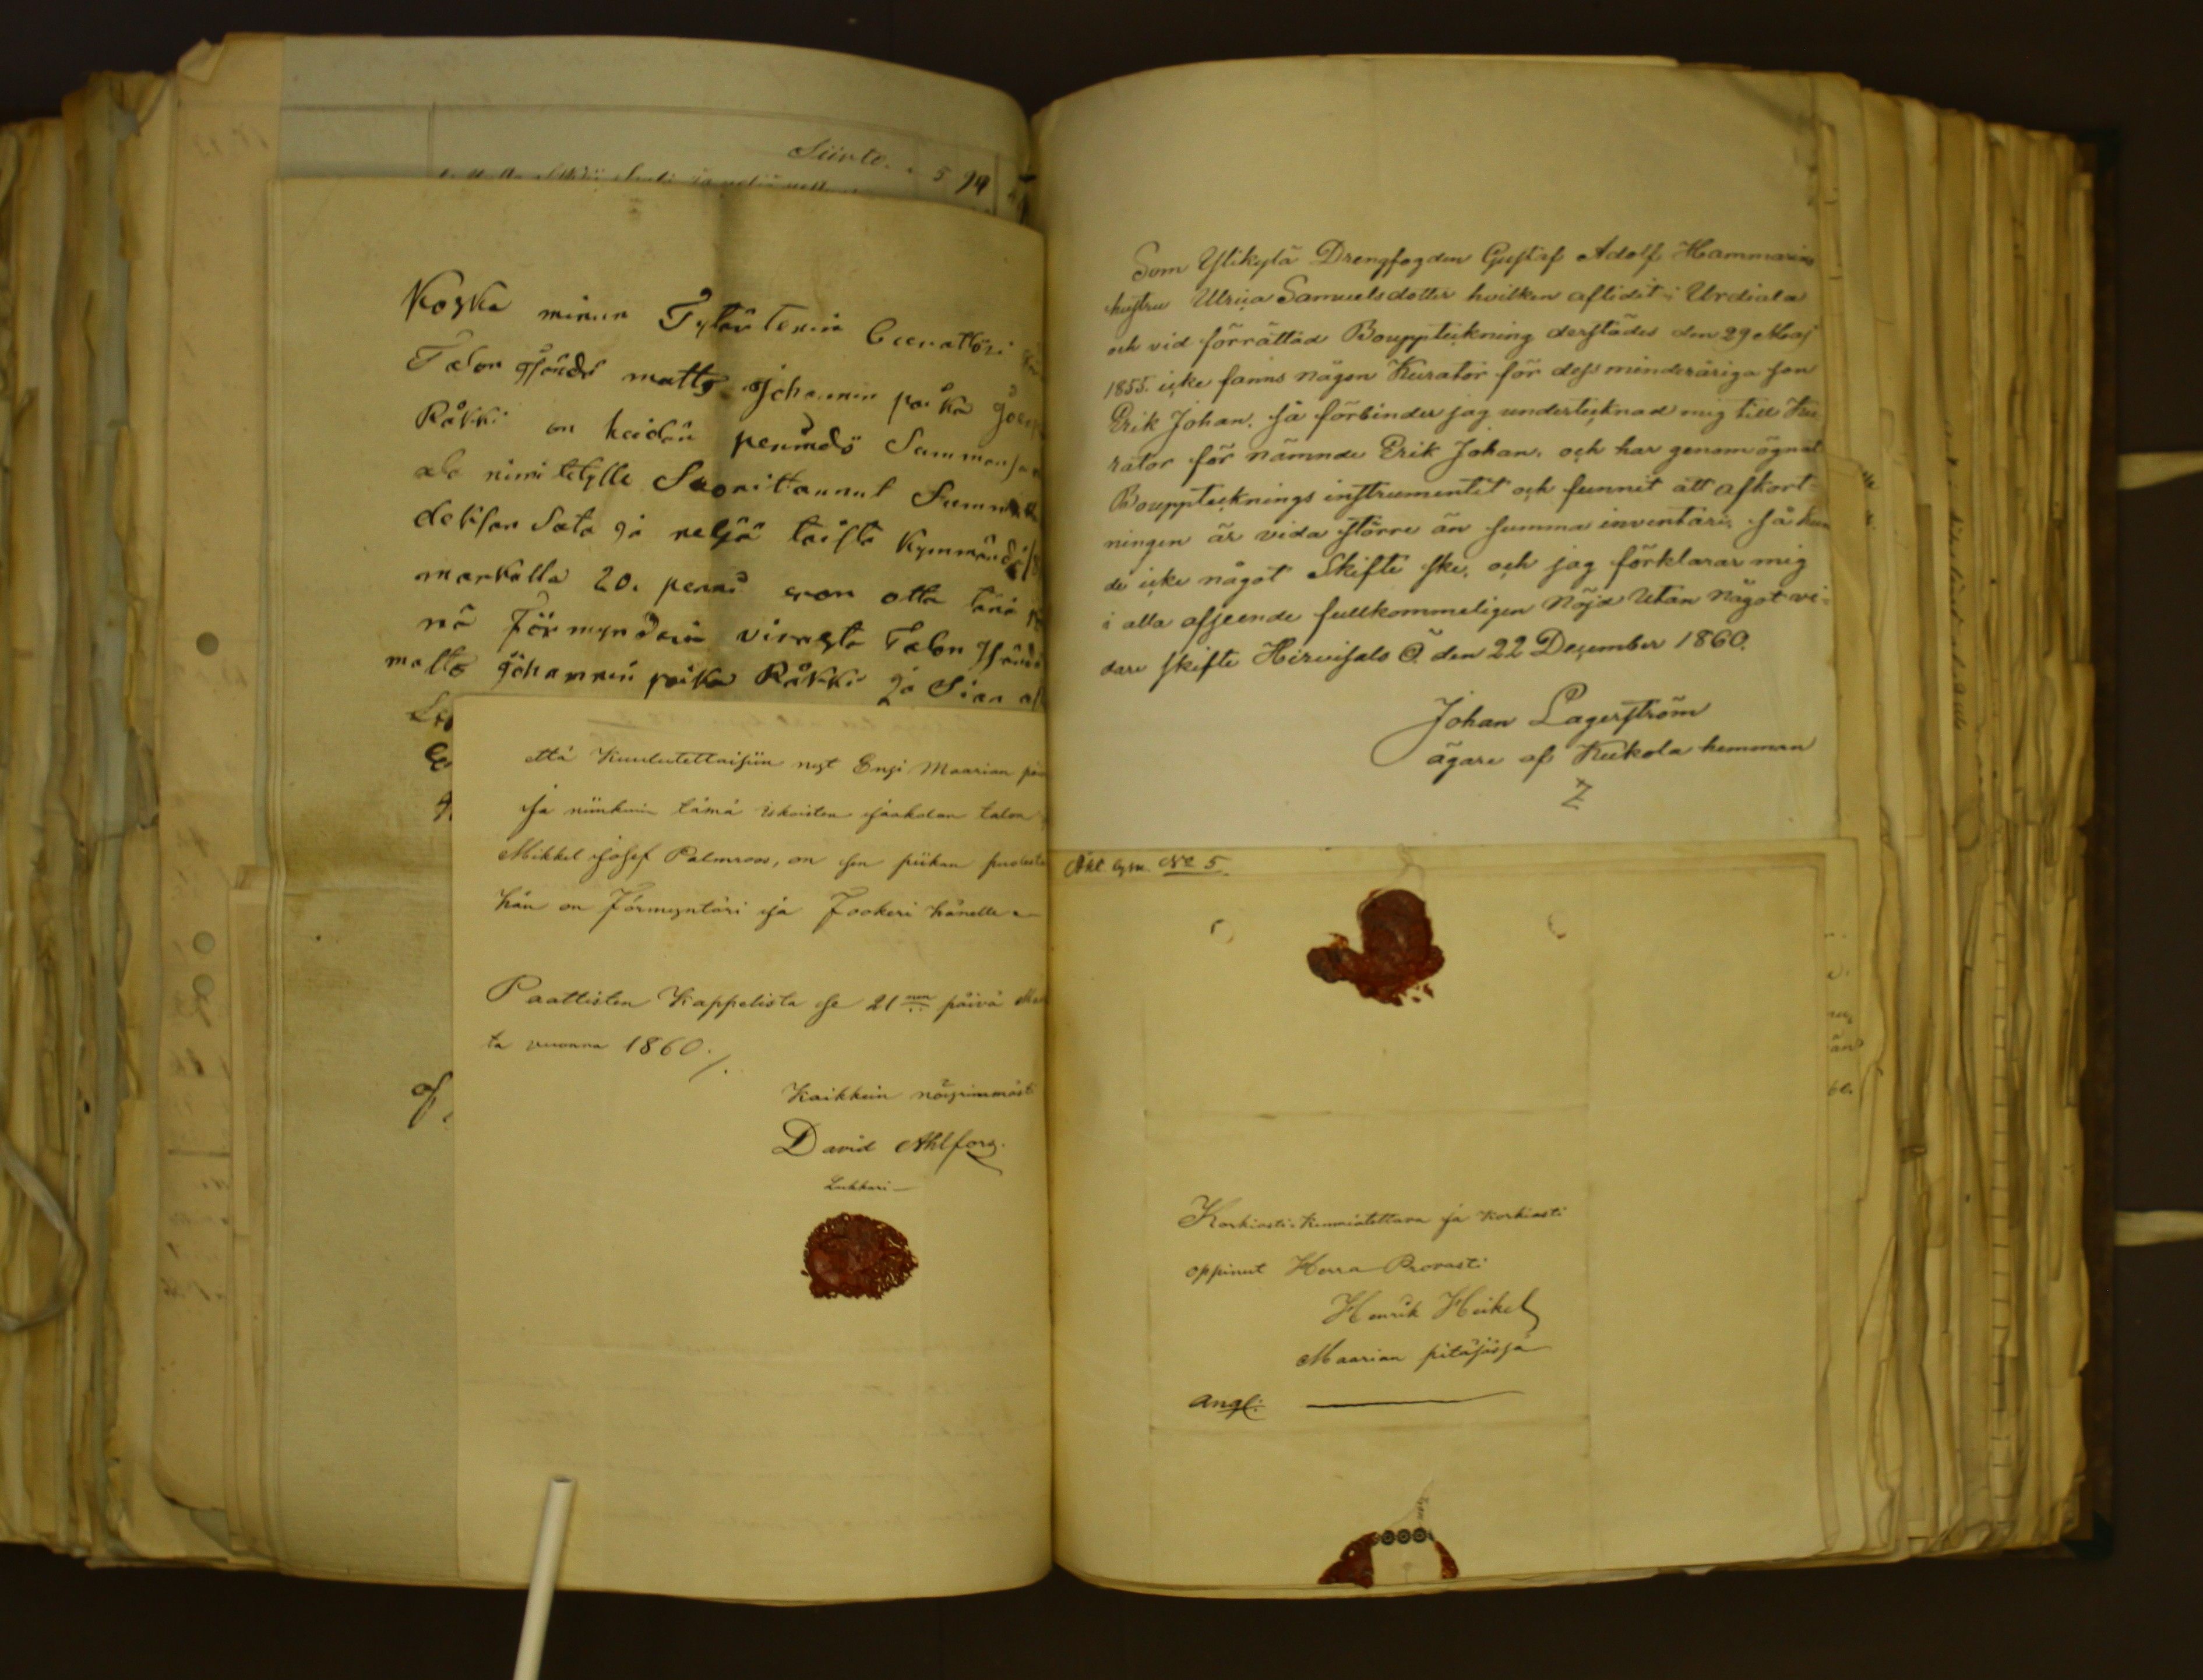 Siirto. 5 94
Koska minun Tytärtenin Curattori
Talon Isändä matts Johannin poika
Råkki on heidän perindö Summansa
ala nimitetylle Suorittannut Summa
deksan Sata ja neljä toista kymmändä
markalla 20. penni enon otta tänä
nä Förmyndäriä virasta Talon Isändä
matts Johannin poika Råkki ja Sian
että Kuulutettaisiin nyt Ensi Maarian
Ja niinkuin tämä Jaakolan talon
Mikkel Josef Palmroos, on sen piikan puolesta
hän on Förmyntäri ja Fookeri hänelle
Paattisten Kappelista se 21 nen päivä
ta vuonna 1860./.
Kaikkein nöyrimmästi
David Ahlfors.
Lukkari
Som Ylikylä Drengfogden Gustaf Adolf Hammarins
hustru Ulrica Samuelsdotter hvilken aflidit i Urdiala
och vid förrättad Bouppteckning derstädes den 29 Maj
1855. icke fanns någon Kurator för dess minderåriga son
Erik Johan, så förbinder jag undertecknad mig till Ku-
rator för nämnde Erik Johan, och har genom ögnat
Bouppteknings instrumentet och funnit att afkort-
ningen är vida större än summa inventari, så kun
de icke något Skifte ske, och jag förklarar mig
i alla afseende fullkommeligen Nöjd Utan något vi-
dare skifte Hirvisalo Ö. den 22 December 1860.
Johan Lagerström
ägare af Kukola hemman
Åkl. bym. No 5.
Korkiasti-kunnioitettava ja korkiasti
oppinut Herra Provasti
Henrik Heikel
Maarian pitäjäsjä
Angl: